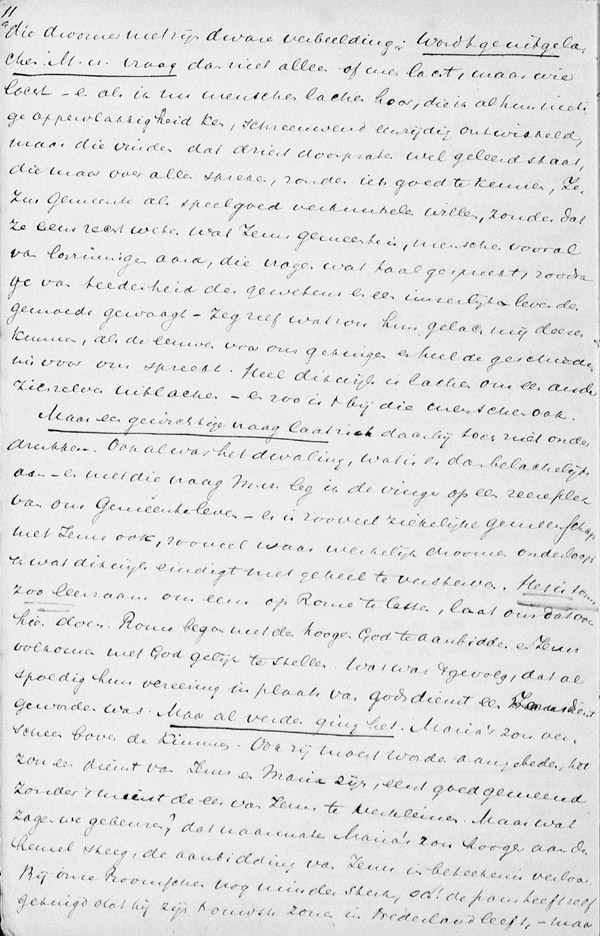 11
die droomer met zijn dwaze verbeelding; Wordt ge uitgela-
chen M. v. vraag dan niet alleen of men lacht, maar wie
lacht - en als ik nu menschen lachen hoor, die ik al hun
ge oppervlakkigheid ken, schreeuwend eenzijdig ontwikkeld,
maar die vinden dat driest doorpraten wel geleerd staat,
die maar over alles spreken, zonder iets goed te kennen,
Jezus Gemeente als speelgoed willen, zonder dat
ze eens recht weten wat Jezus gemeente is, menschen vooral
van aard, die vragen wat taal ge spreekt, zoodra
ge van teederheid des gewetens en een innerlijk leven des
gemoeds gewaagt - Zeg zelf wat zou hun gelach mij deeren
kunnen, als de eeuwen voor ons getuigen en heel de geschiede-
nis voor ons spreekt. Heel dikwijls is lachen om een ander
zichzelven uitlachen - en zoo is 't bij die menschen ook.
Maar een gewichtige vraag laat zich daarbij toch niet onder-
drukken. Ook al was het dwaling, wat is er dan belachelijks
aan - en met die vraag M. v. leg ik de vinger op een zeere plek
van ons Gemeenteleven - er is zooveel ziekelijke gemeenschap
met Jezus ook, zooveel waar werkelijk droomen onder loopt
en wat dikwijls eindigt met geheel te versterven. Het is soms
zoo leerzaam om eens op Rome te letten, laat ons dat ook
hier doen. Rome begon met de hoogen God te aanbidden en Jezus
volkomen met God gelijk te stellen. Wat was 't gevolg, dat al
spoedig hun vereering in plaats van godsdienst een Jezusdienst
geworden was. Maar al verder ging het. Maria's zon ver-
scheen boven de kimmen. Ook zij moest worden aangebeden, het
zou een dienst van Jezus en Maria zijn, eerst goed gemeend
zonder 't minst de eer van Jezus te verkleinen. Maar wat
zagen we gebeuren? dat naarmate Maria's zon hooger aan den
hemel steeg, de aanbidding van Jezus in beteekenis verloor.
Bij onze Roomschen nog minder sterk, de paus heeft zelf
getuigd dat hij zijn trouwste zonen in Nederland heeft, - maar